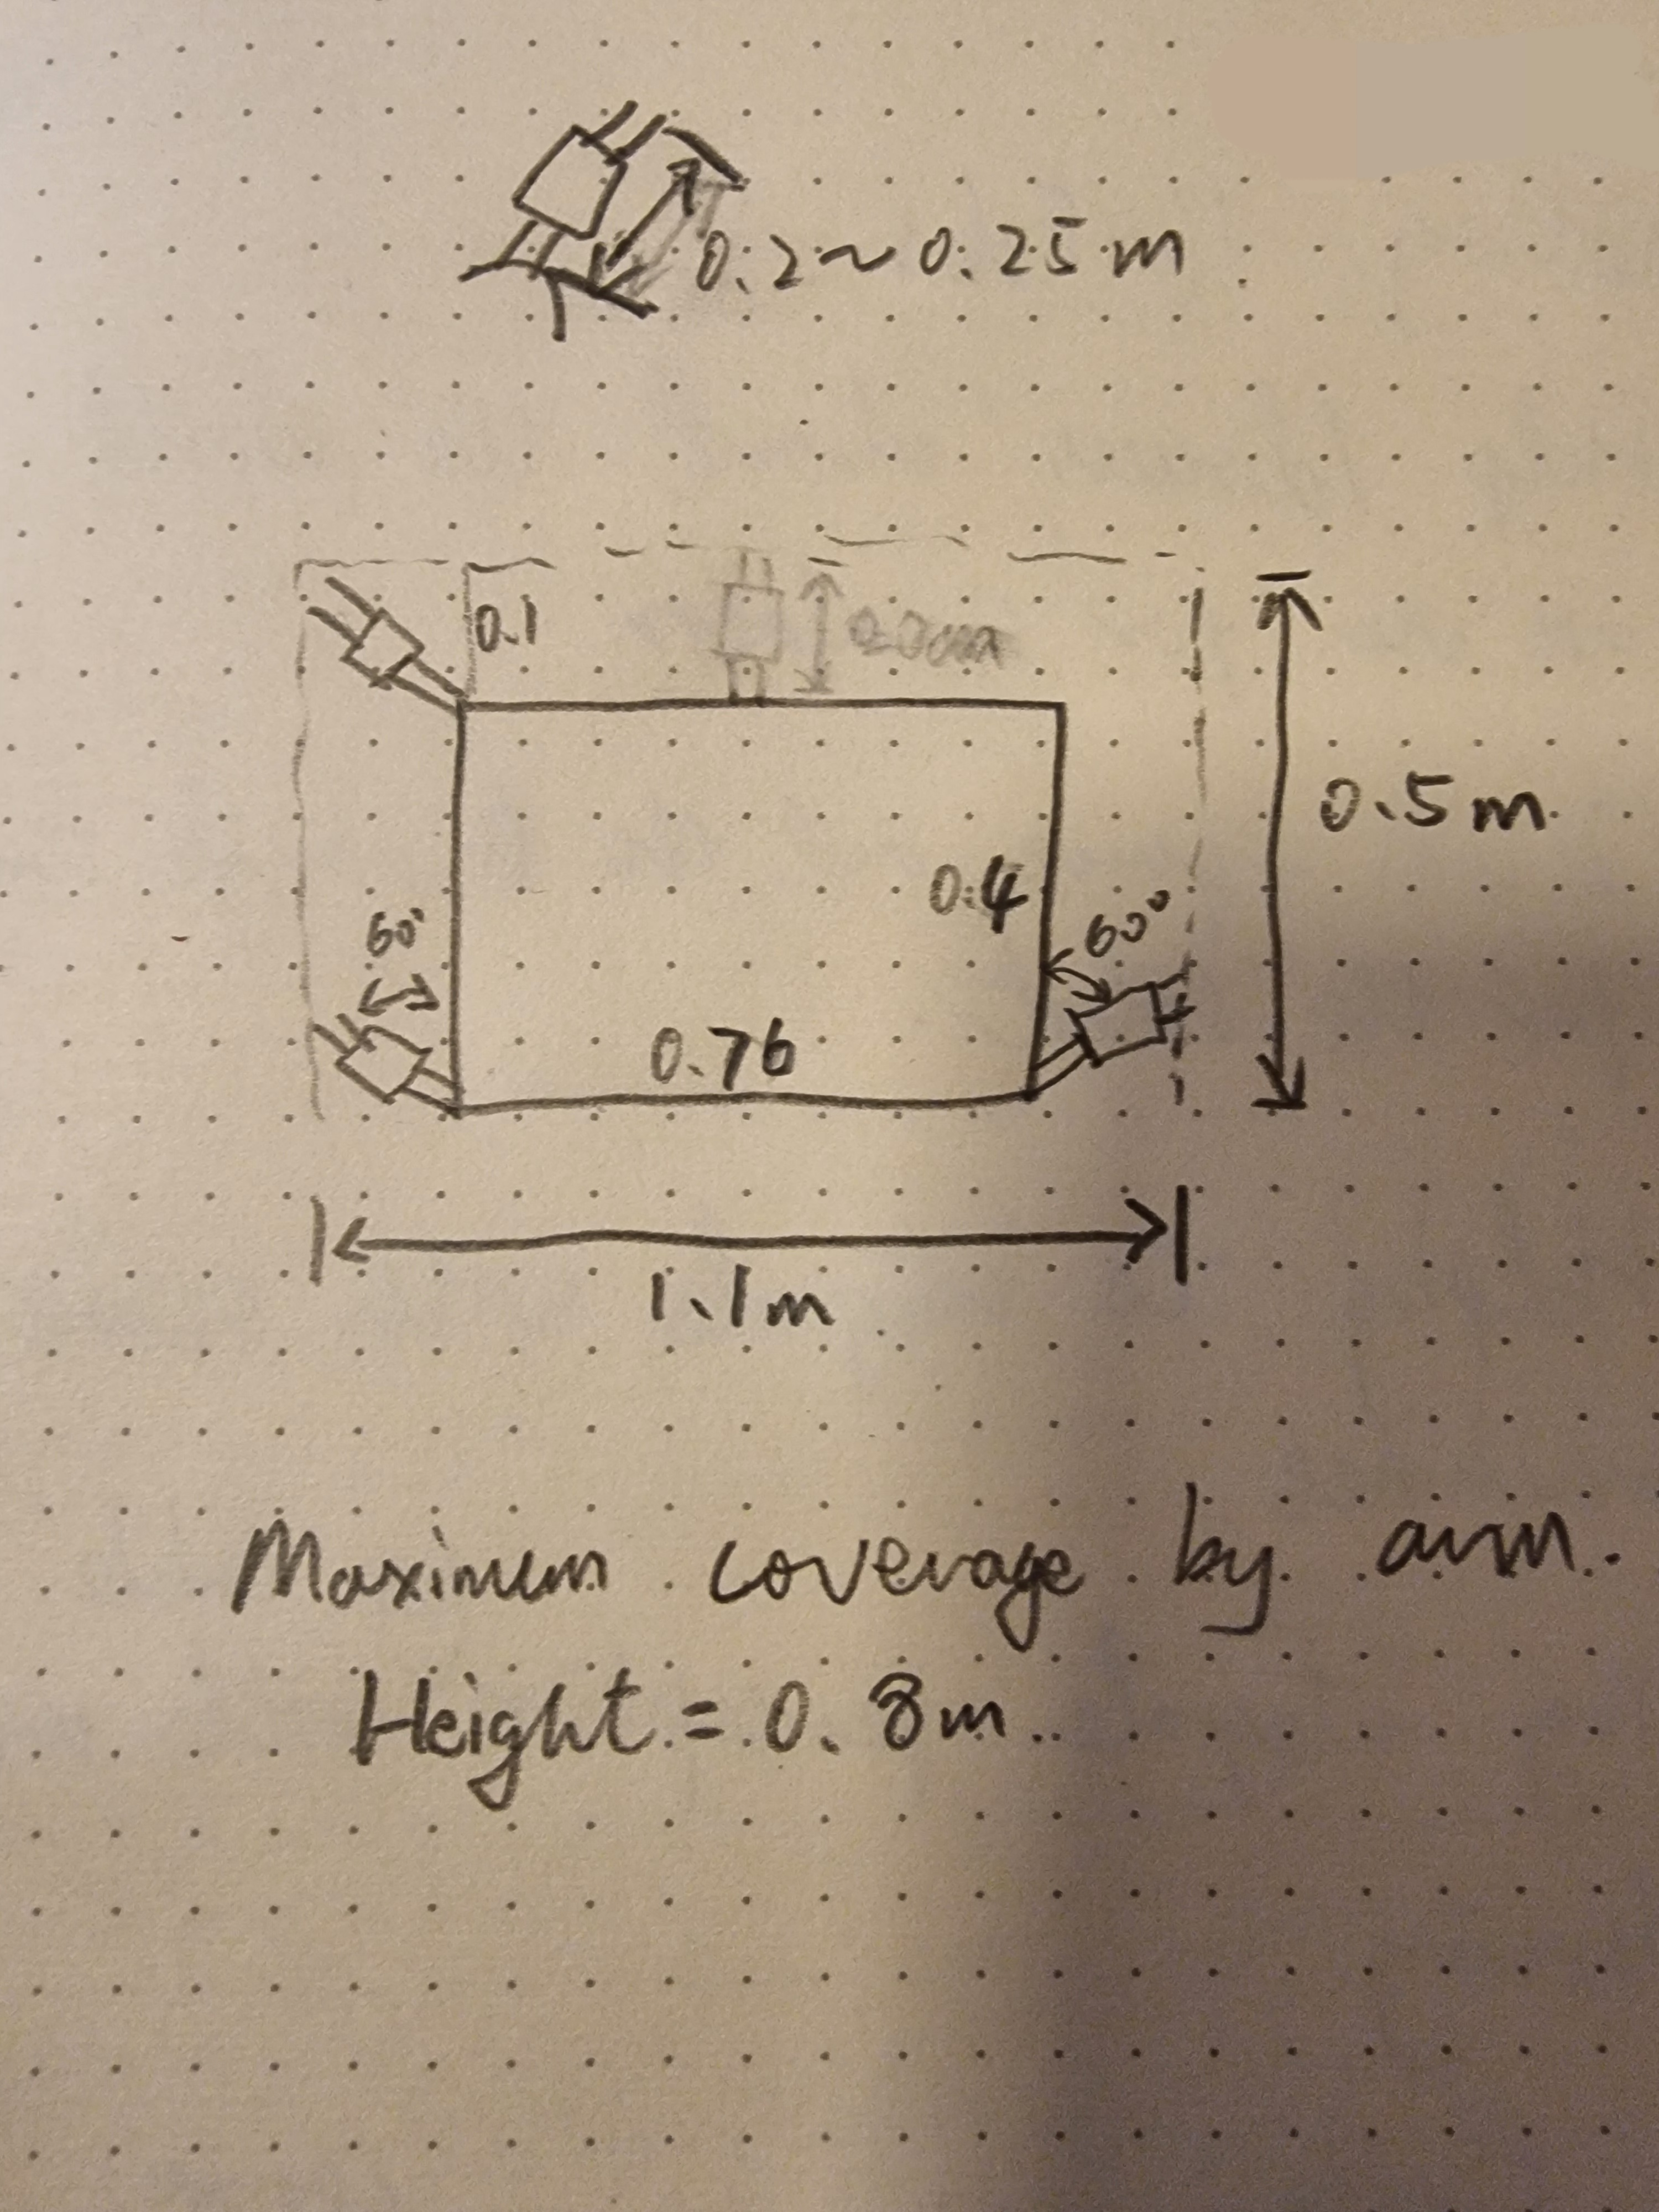 0.2~0.25m
0.1
0.5m
0.4
60°
60°
0.76
1.1m
Maximum coverage by arm.
Height = 0.8m.